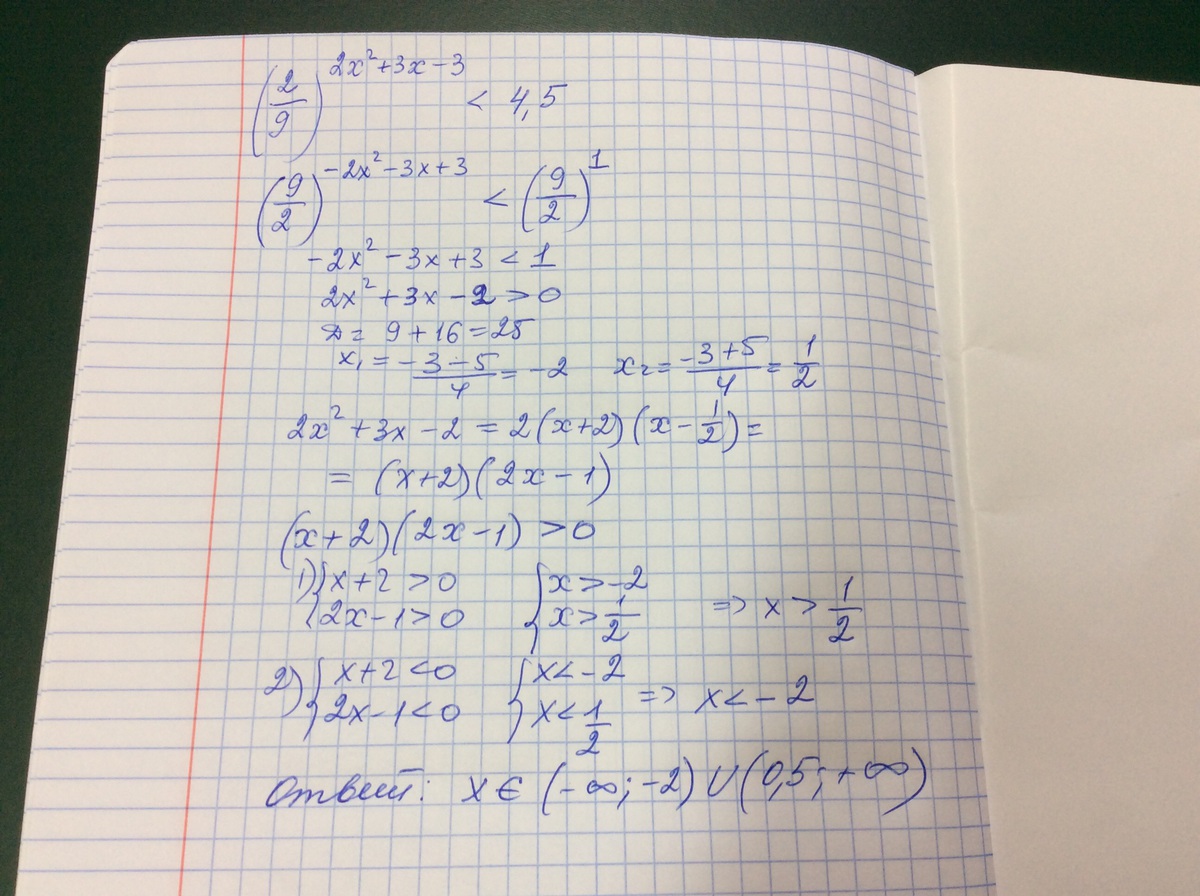 (2/9)^(2x²+3x-3) < 4,5
(9/2)^(-2x²-3x+3) < (9/2)^1
-2x²-3x+3 < 1
2x²+3x-2 > 0
D = 9+16 = 25
x₁ = (-3-5)/4 = -2   x₂ = (-3+5)/4 = 1/2
2x²+3x-2 = 2(x+2)(x-1/2) =
= (x+2)(2x-1)
(x+2)(2x-1) > 0
1) { x+2 > 0   { x > -2
{ 2x-1 > 0   { x > 1/2   => x > 1/2
2) { x+2 < 0   { x < -2
{ 2x-1 < 0   { x < 1/2   => x < -2
Ответ: x ∈ (-∞; -2) ∪ (0,5; +∞)